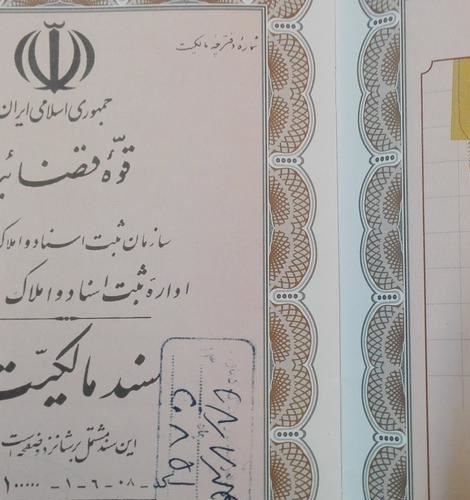 شمارهٔ دفترچه مالکیت
جمهوری اسلامی ایران
قوّه قضائیه
سازمان ثبت اسناد و املاک
ادارهٔ ثبت اسناد و املاک
سند مالکیت
این سند مشتمل بر شانزده صفحه است